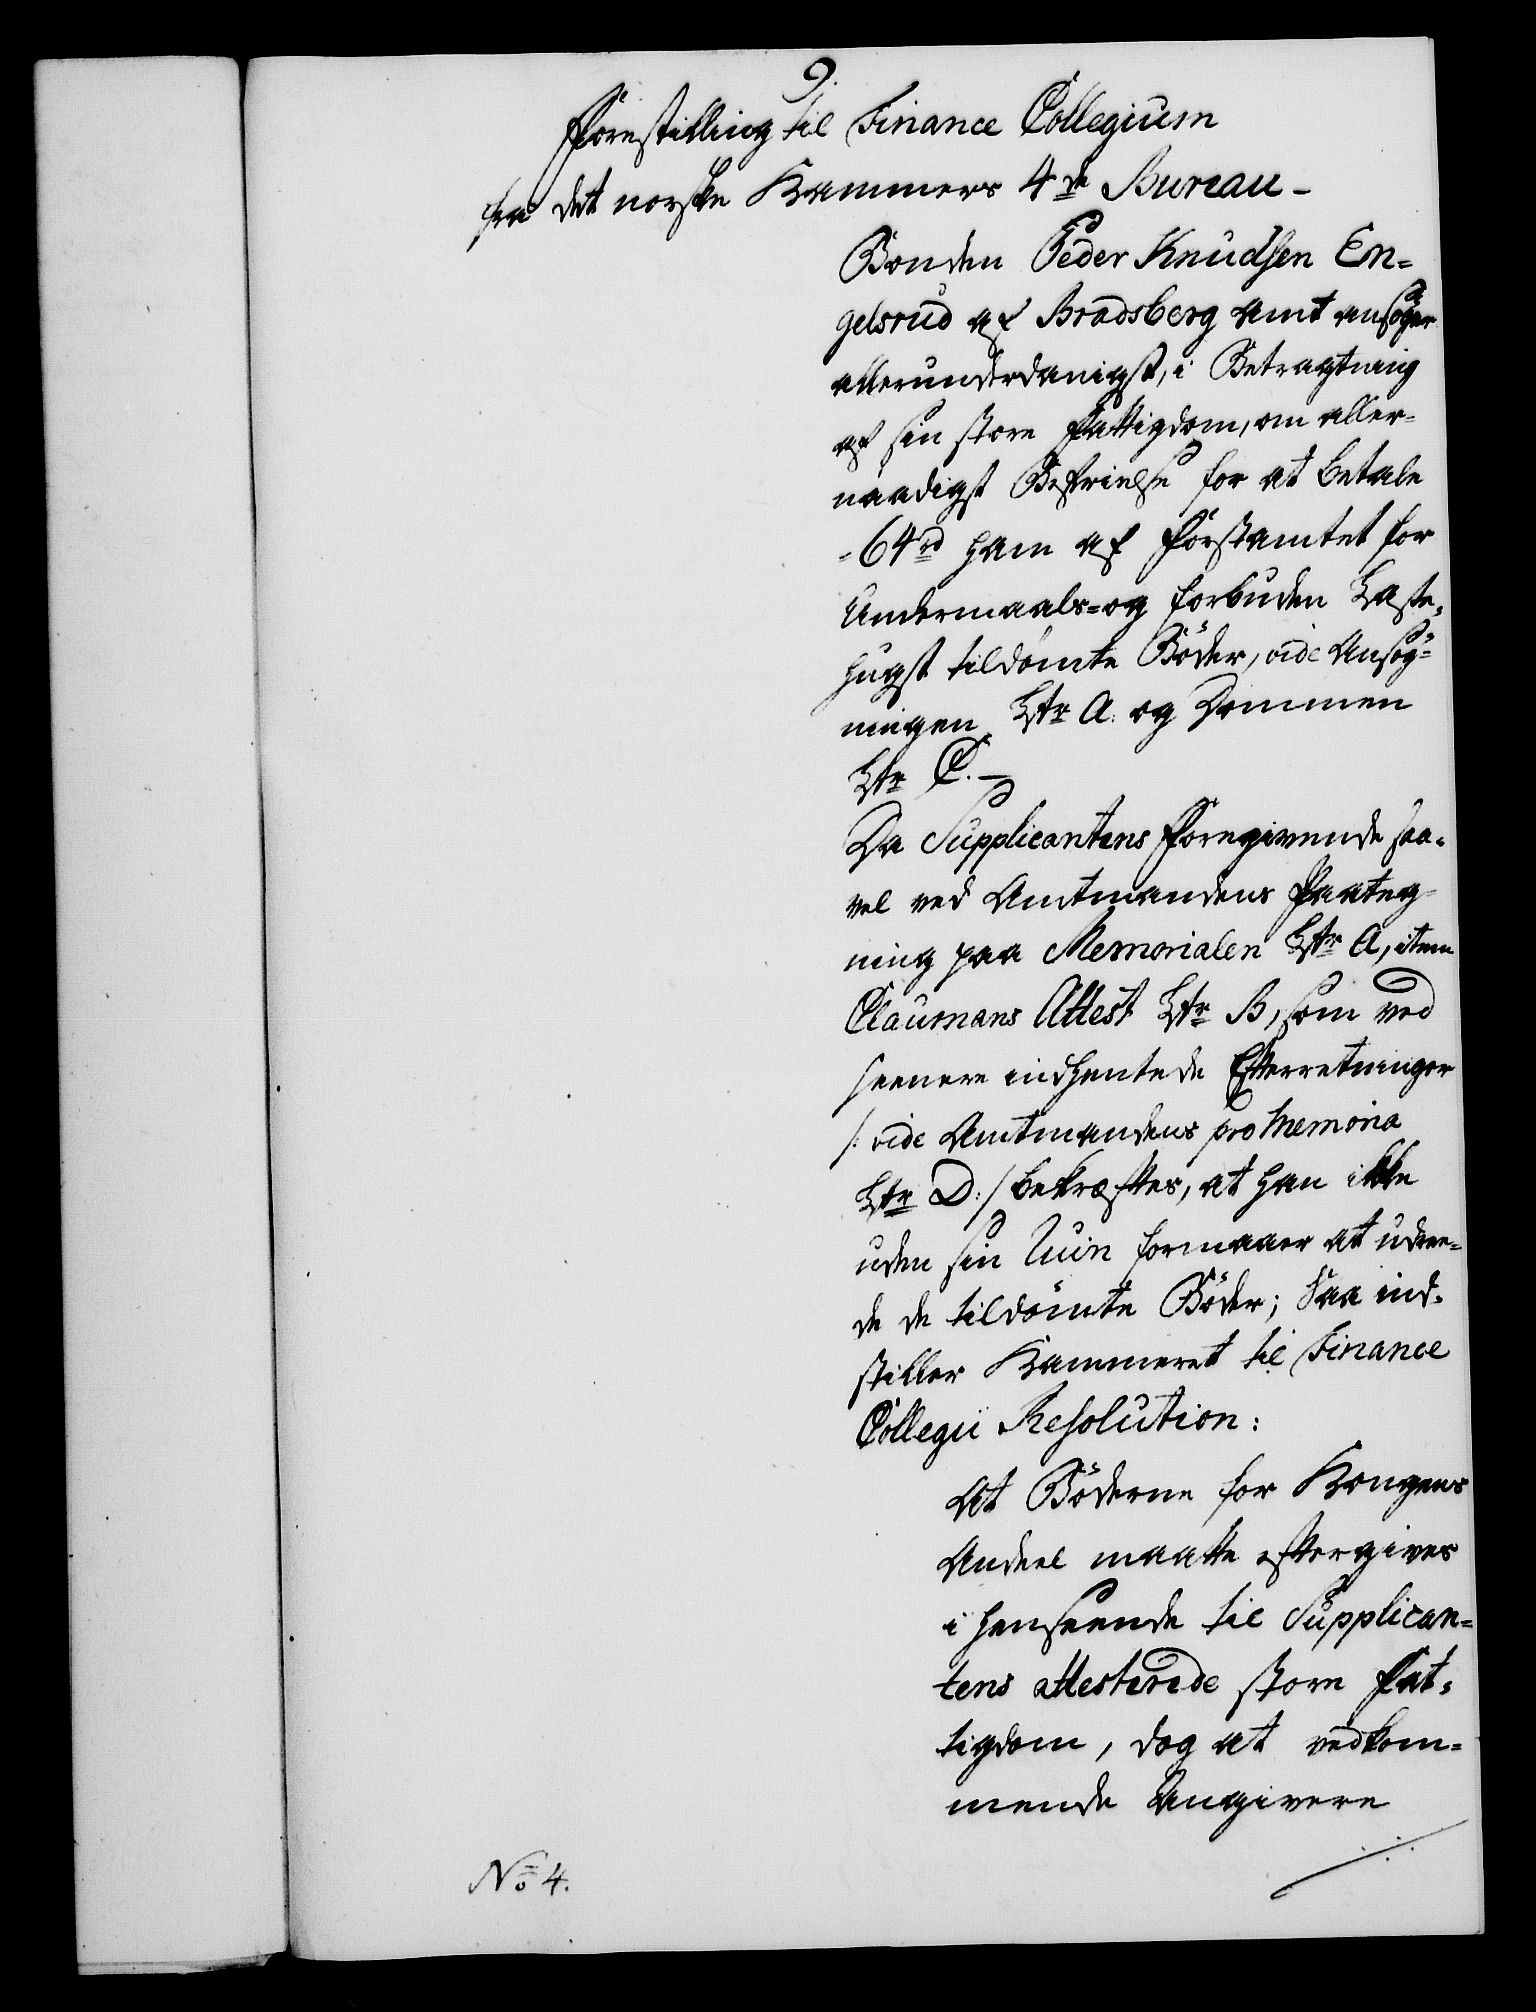 9.
Forestilling til Finance Collegium
fra det norske Kammers 4de Bureau -
Bonden Peder Knudsen En=
gelsrud af Bradsberg Amt ansøger
allerunderdanigst, i Betragtning
af sin store Fattigdom, om aller=
naadigst Befrielse for at betale
-64rd ham af Forstamtet for
Undermaals- og forbuden Laste=
hugst tildømte Bøder, vide Ansøg=
ningen Ltr A. og Dommen
Ltr C. -
Da Supplicantens Foregivende saa=
vel ved Amtmandens Paateg=
ning paa Memorialen Ltr A, item
Claumans Attest Ltr B, som ved
seenere indhentede Efterretninger
/: vide Amtmandens pro Memoria
Ltr D:/ bekræftes, at han ikke
uden sin Ruin formaaer at udree=
de de tildømte Bøder; Saa ind=
stiller Kammeret til Finance
Collegii Resolution:
At Bøderne for Kongens
Andeel maatte eftergives
i Henseende til Supplican=
tens attesterede store Fat=
tigdom, dog at vedkom=
mende Angivere
No 4.